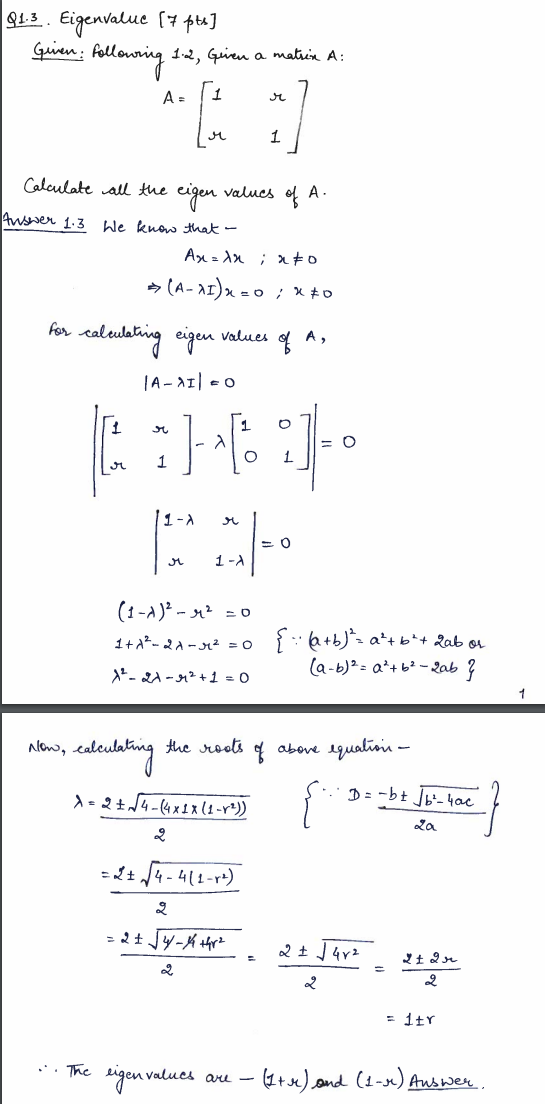 Q1.3. Eigenvalue [7 pts]
Given: Following 1.2, Given a matrix A:
A = [1 r
r 1]
Calculate all the eigen values of A.
Answer 1.3 We know that –
Ax = λx ; x ≠ 0
⇒ (A-λI)x = 0 ; x ≠ 0
For calculating eigen values of A,
|A-λI| = 0
|[1 r
r 1] - λ[1 0
0 1]| = 0
|1-λ r
r 1-λ| = 0
(1-λ)² - r² = 0
1+λ²-2λ-r² = 0 {∵ (a+b)² = a²+b²+2ab or
λ²-2λ-r²+1 = 0 (a-b)² = a²+b²-2ab}
1
Now, calculating the roots of above equation –
λ = 2 ± √4-(4×1×(1-r²)) / 2 {∵ D = -b ± √b²-4ac / 2a}
= 2 ± √4-4(1-r²) / 2
= 2 ± √4-4+4r² / 2 = 2 ± √4r² / 2 = 2 ± 2r / 2
= 1±r
∴ The eigenvalues are – (1+r) and (1-r) Answer.